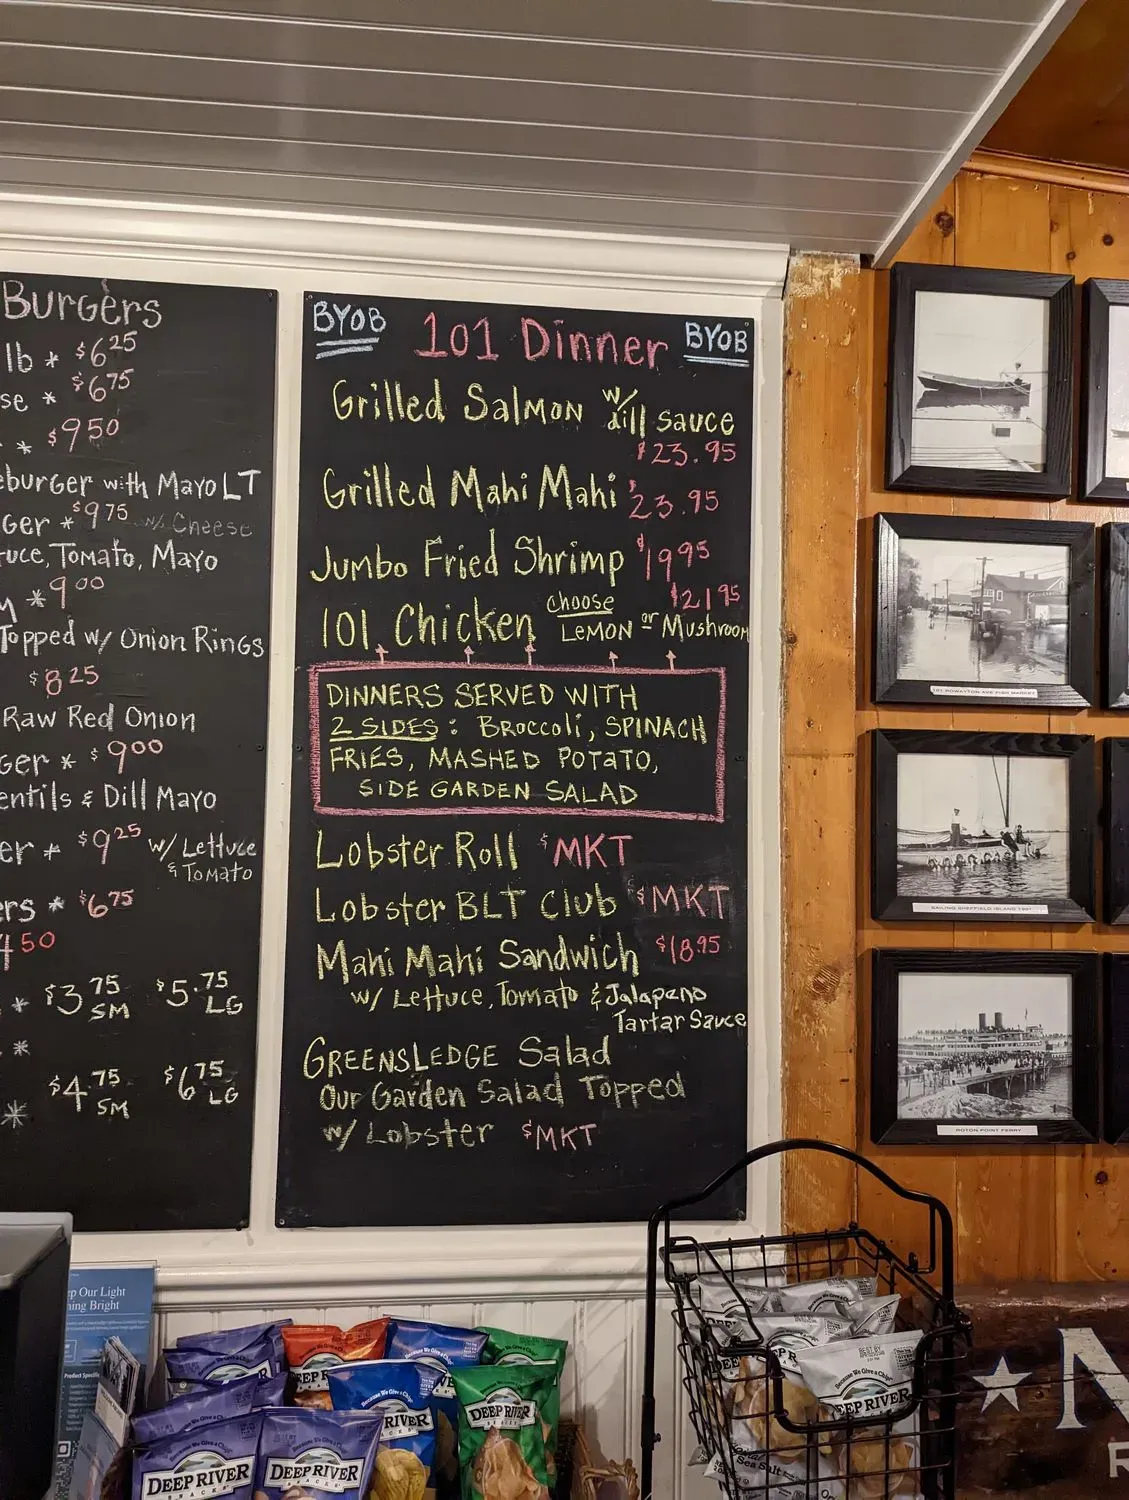 Burgers
lb * $6.25
se * $6.75
* $9.50
eburger with Mayo LT
ger * $9.75 w/ Cheese
tuce, Tomato, Mayo
* 9.00
Topped w/ Onion Rings
$8.25
Raw Red Onion
ger * $9.00
entils & Dill Mayo
er * $9.25 w/ Lettuce
& Tomato
ers * $6.75
4.50
* $3.75 SM $5.75 LG
*
* $4.75 SM $6.75 LG
BYOB 101 Dinner BYOB
Grilled Salmon w/ dill sauce
$23.95
Grilled Mahi Mahi $23.95
Jumbo Fried Shrimp $19.95
$21.95
101 Chicken Choose Lemon or Mushroom
DINNERS SERVED WITH
2 SIDES: Broccoli, SPINACH
FRIES, MASHED POTATO,
SIDE GARDEN SALAD
Lobster Roll $MKT
Lobster BLT Club $MKT
Mahi Mahi Sandwich $18.95
w/ Lettuce, Tomato & Jalapeno
Tartar Sauce
GREENSLEDGE Salad
Our Garden Salad Topped
w/ Lobster $MKT
101 ROWAYTON AVE FISH MARKET
SAILING SHEFFIELD ISLAND 1901
ROTON POINT FERRY
p Our Light
ning Bright
Product Specifi
Because We Give a Chip!
DEEP RIVER
SNACKS
Because We Give a Chip!
DEEP RIVER
SNACKS
Because We Give a Chip!
RIVER
DEEP RIVER
SNACKS
Because We Give a Chip!
DEEP RIVER
Sea Salt
★ N
R